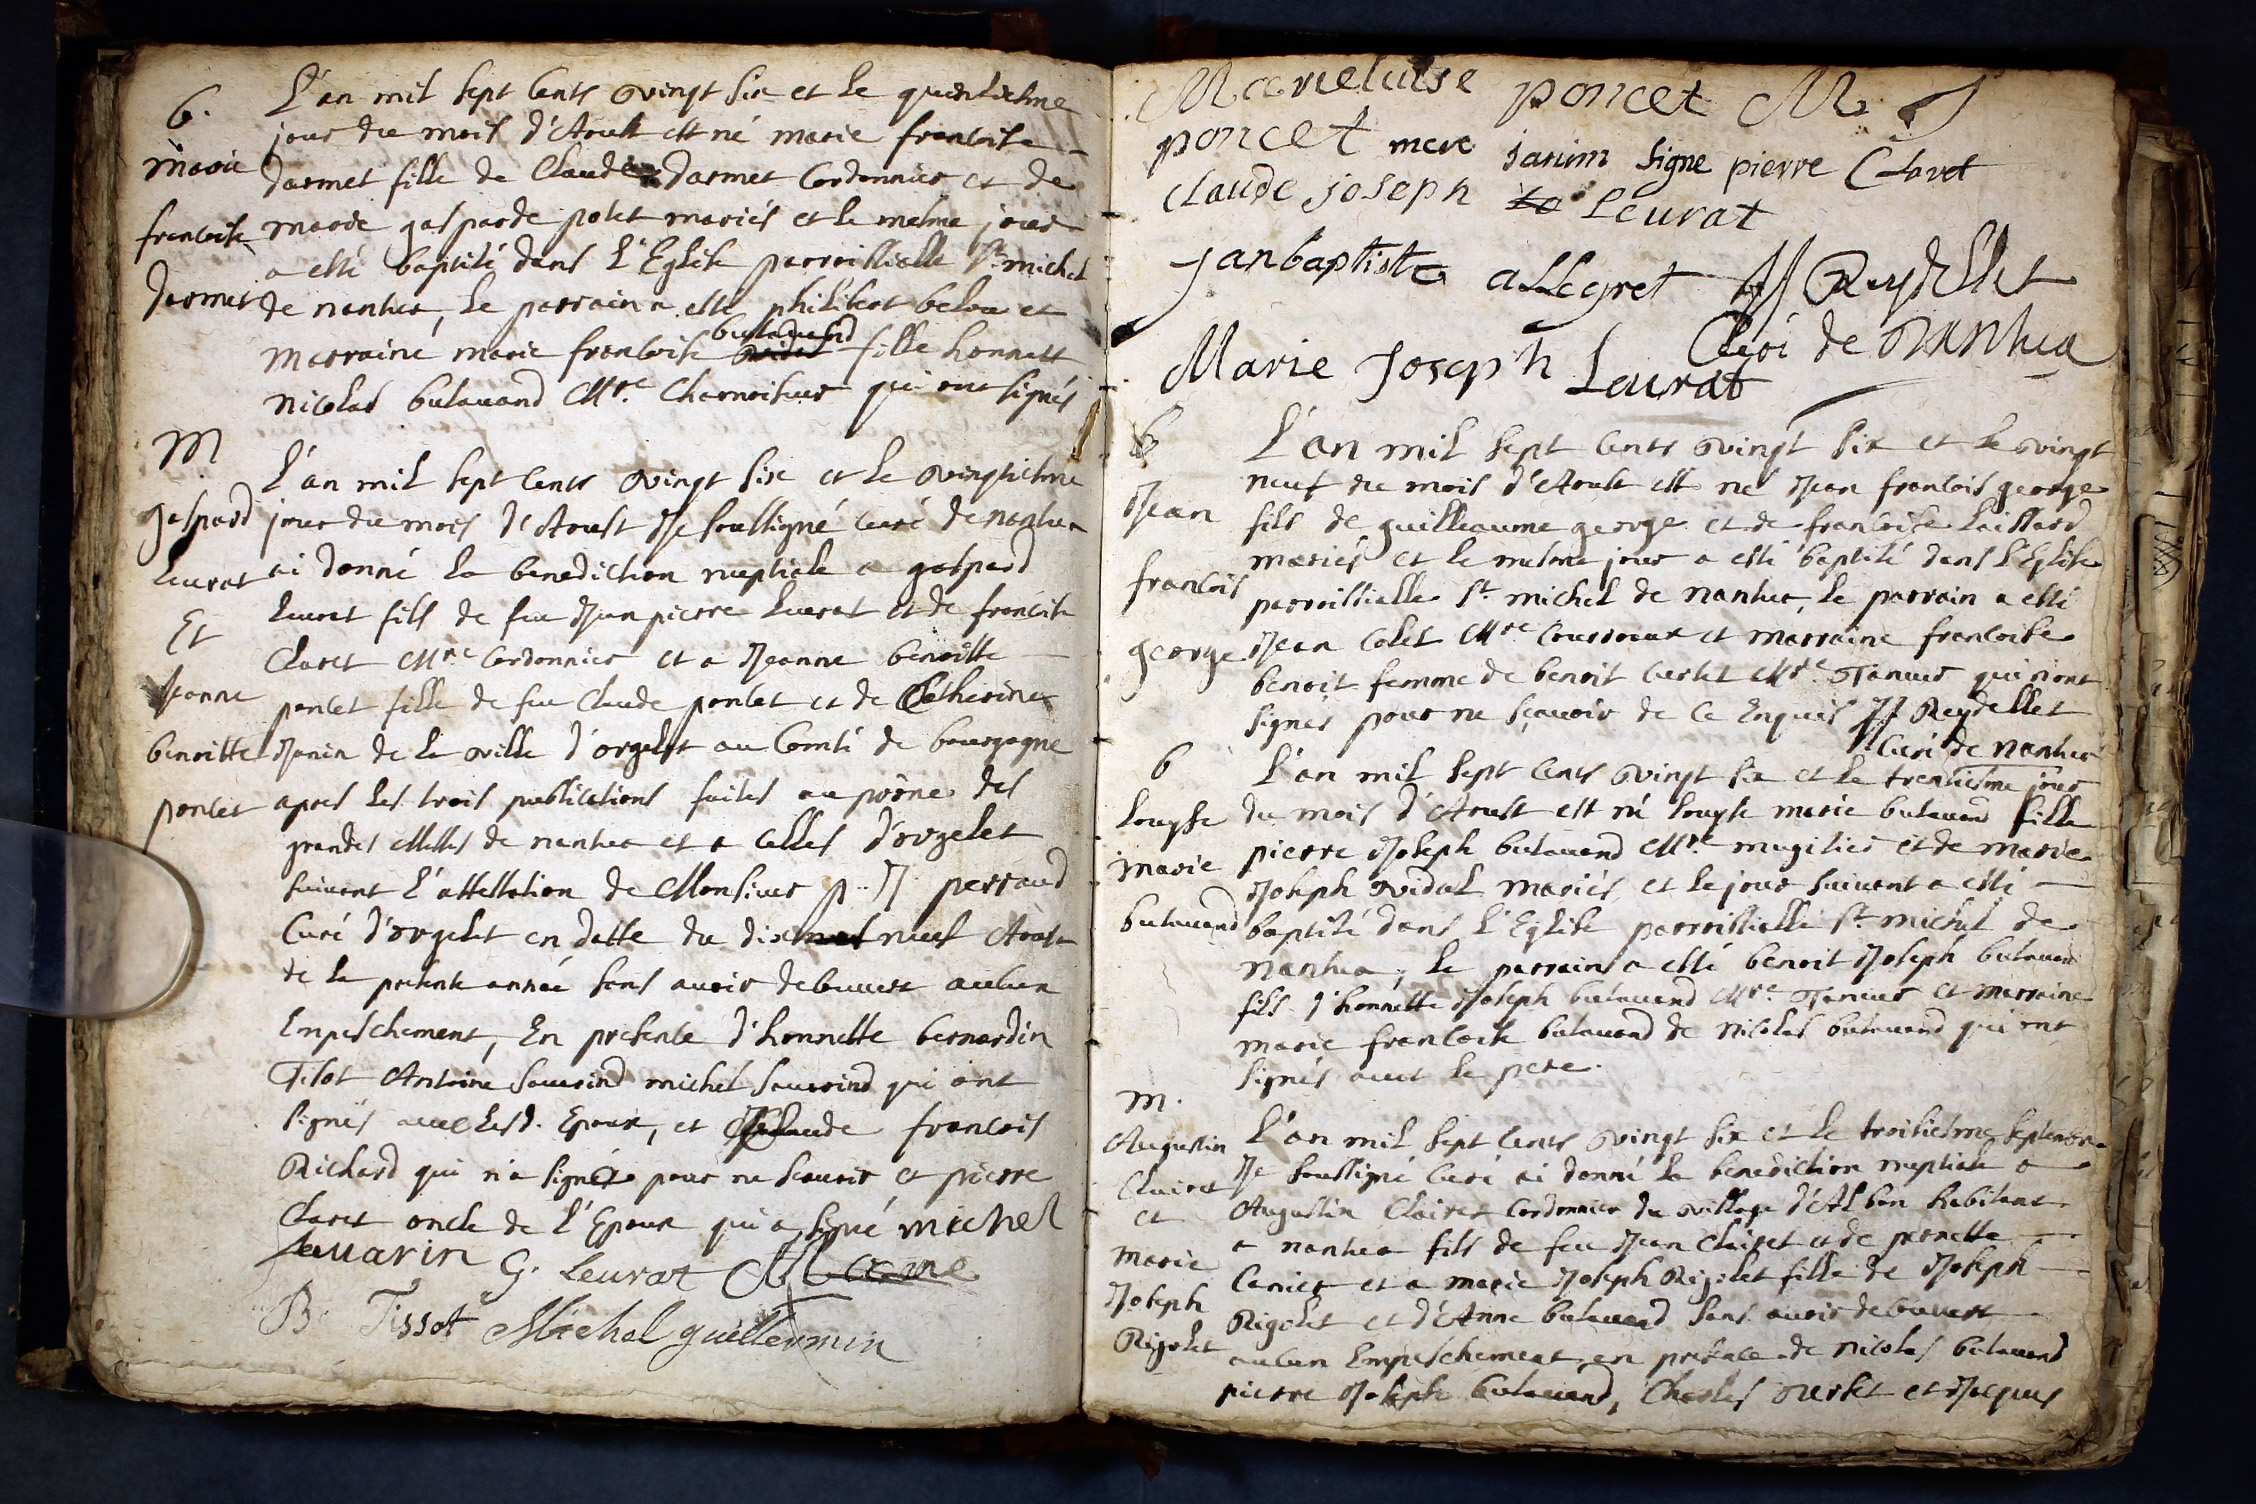 b.
marie
francoise
darmet
L'an mil sept cents vingt six et le quinziesme
jour du mois d'Aoust est né marie francoise
darmet fille de Claude darmet Cordonnier et de
marie gasparde polet mariés et le mesme jour
a esté baptisé dans l'Eglise parroissialle St michel
de nantua, le parrain a esté philibert belou et
marraine marie francoise butavand fille honneste
nicolas butavand Mre. Chamoiseur qui ont signés
M
gaspard
leurat
Et
Jeanne
benoitte
poncet
L'an mil sept cents vingt six et le vingtiesme
jour du mois d'Aoust Je soussigné curé de nantua
ai donné la benediction nuptiale a gaspard
leurat fils de feu Jean pierre leurat et de francoise
Claret Mre Cordonnier et a Jeanne benoitte
poncet fille de feu Claude poncet et de Catherine
Janin de la ville d'orgelet au Comté de bourgogne
apres les trois publications faites au prône des
grandes Messes de nantua et a celles d'orgelet
suivant l'attestation de Monsieur p. J. perraud
Curé d'orgelet en datte du dix neuf Aoust
de la presente année sans avoir decouvert aucun
Empeschement, En presence d'honneste bernardin
Tisot Antoine sauvrind michel sauvrind qui ont
signés avec lesd. Epoux, et Claude francois
Richard qui n'a signé pour ne scavoir et pierre
Claret oncle de l'Epoux qui a signé michel
sauuarin G. Leurat
B. Tissot Michel guillermin
Marieluise poncet M
poncet mere janim signe pierre Claret
Claude joseph Leurat
janbaptiste allegret JJ Reydellet
Curé de Nantua
Marie Joseph Leurat
b
Jean
francois
george
L'an mil sept cents vingt six et le vingt
neuf du mois d'Aoust est né Jean francois george
fils de guilleaume george et de francoise laissard
mariés et le mesme jour a esté baptisé dans l'Eglise
parroissialle St michel de nantua, le parrain a esté
Jean Colet Mre Courroieur et marraine francoise
benoit femme de benoit Mre. Taneur qui n'ont
signés pour ne sçavoir de ce Enquis JJ Reydellet
Curé de nantua
b
Louyse
marie
butavand
L'an mil sept cents vingt six et le trentiesme jour
du mois d'Aoust est né louyse marie butavand fille
pierre Joseph butavand Mre. megisier et de marie
Joseph vidal mariés et le jour suivant a esté
baptisé dans l'Eglise parroissialle St. michel de
nantua, le parrain a esté benoit Joseph butavand
fils d'honneste Joseph butavand Mre. Taneur et marraine
marie francoise butavand de nicolas butavand qui ont
signés avec le pere.
m.
Augustin
Clairet
et
marie
Joseph
Rigolet
L'an mil sept cents vingt six et le troisiesme septembre
Je soussigné Curé ai donné la benediction nuptiale a
Augustin Clairet Cordonnier du village d'Albon habitant
a nantua fils de feu Jean Clairet et de pernette
Carrier et a marie Joseph Rigolet fille de Joseph
Rigolet et d'Anne butavand sans avoir decouvert
aucun Empeschement en presence de nicolas butavand
pierre Joseph butavand, Charles et Jacques